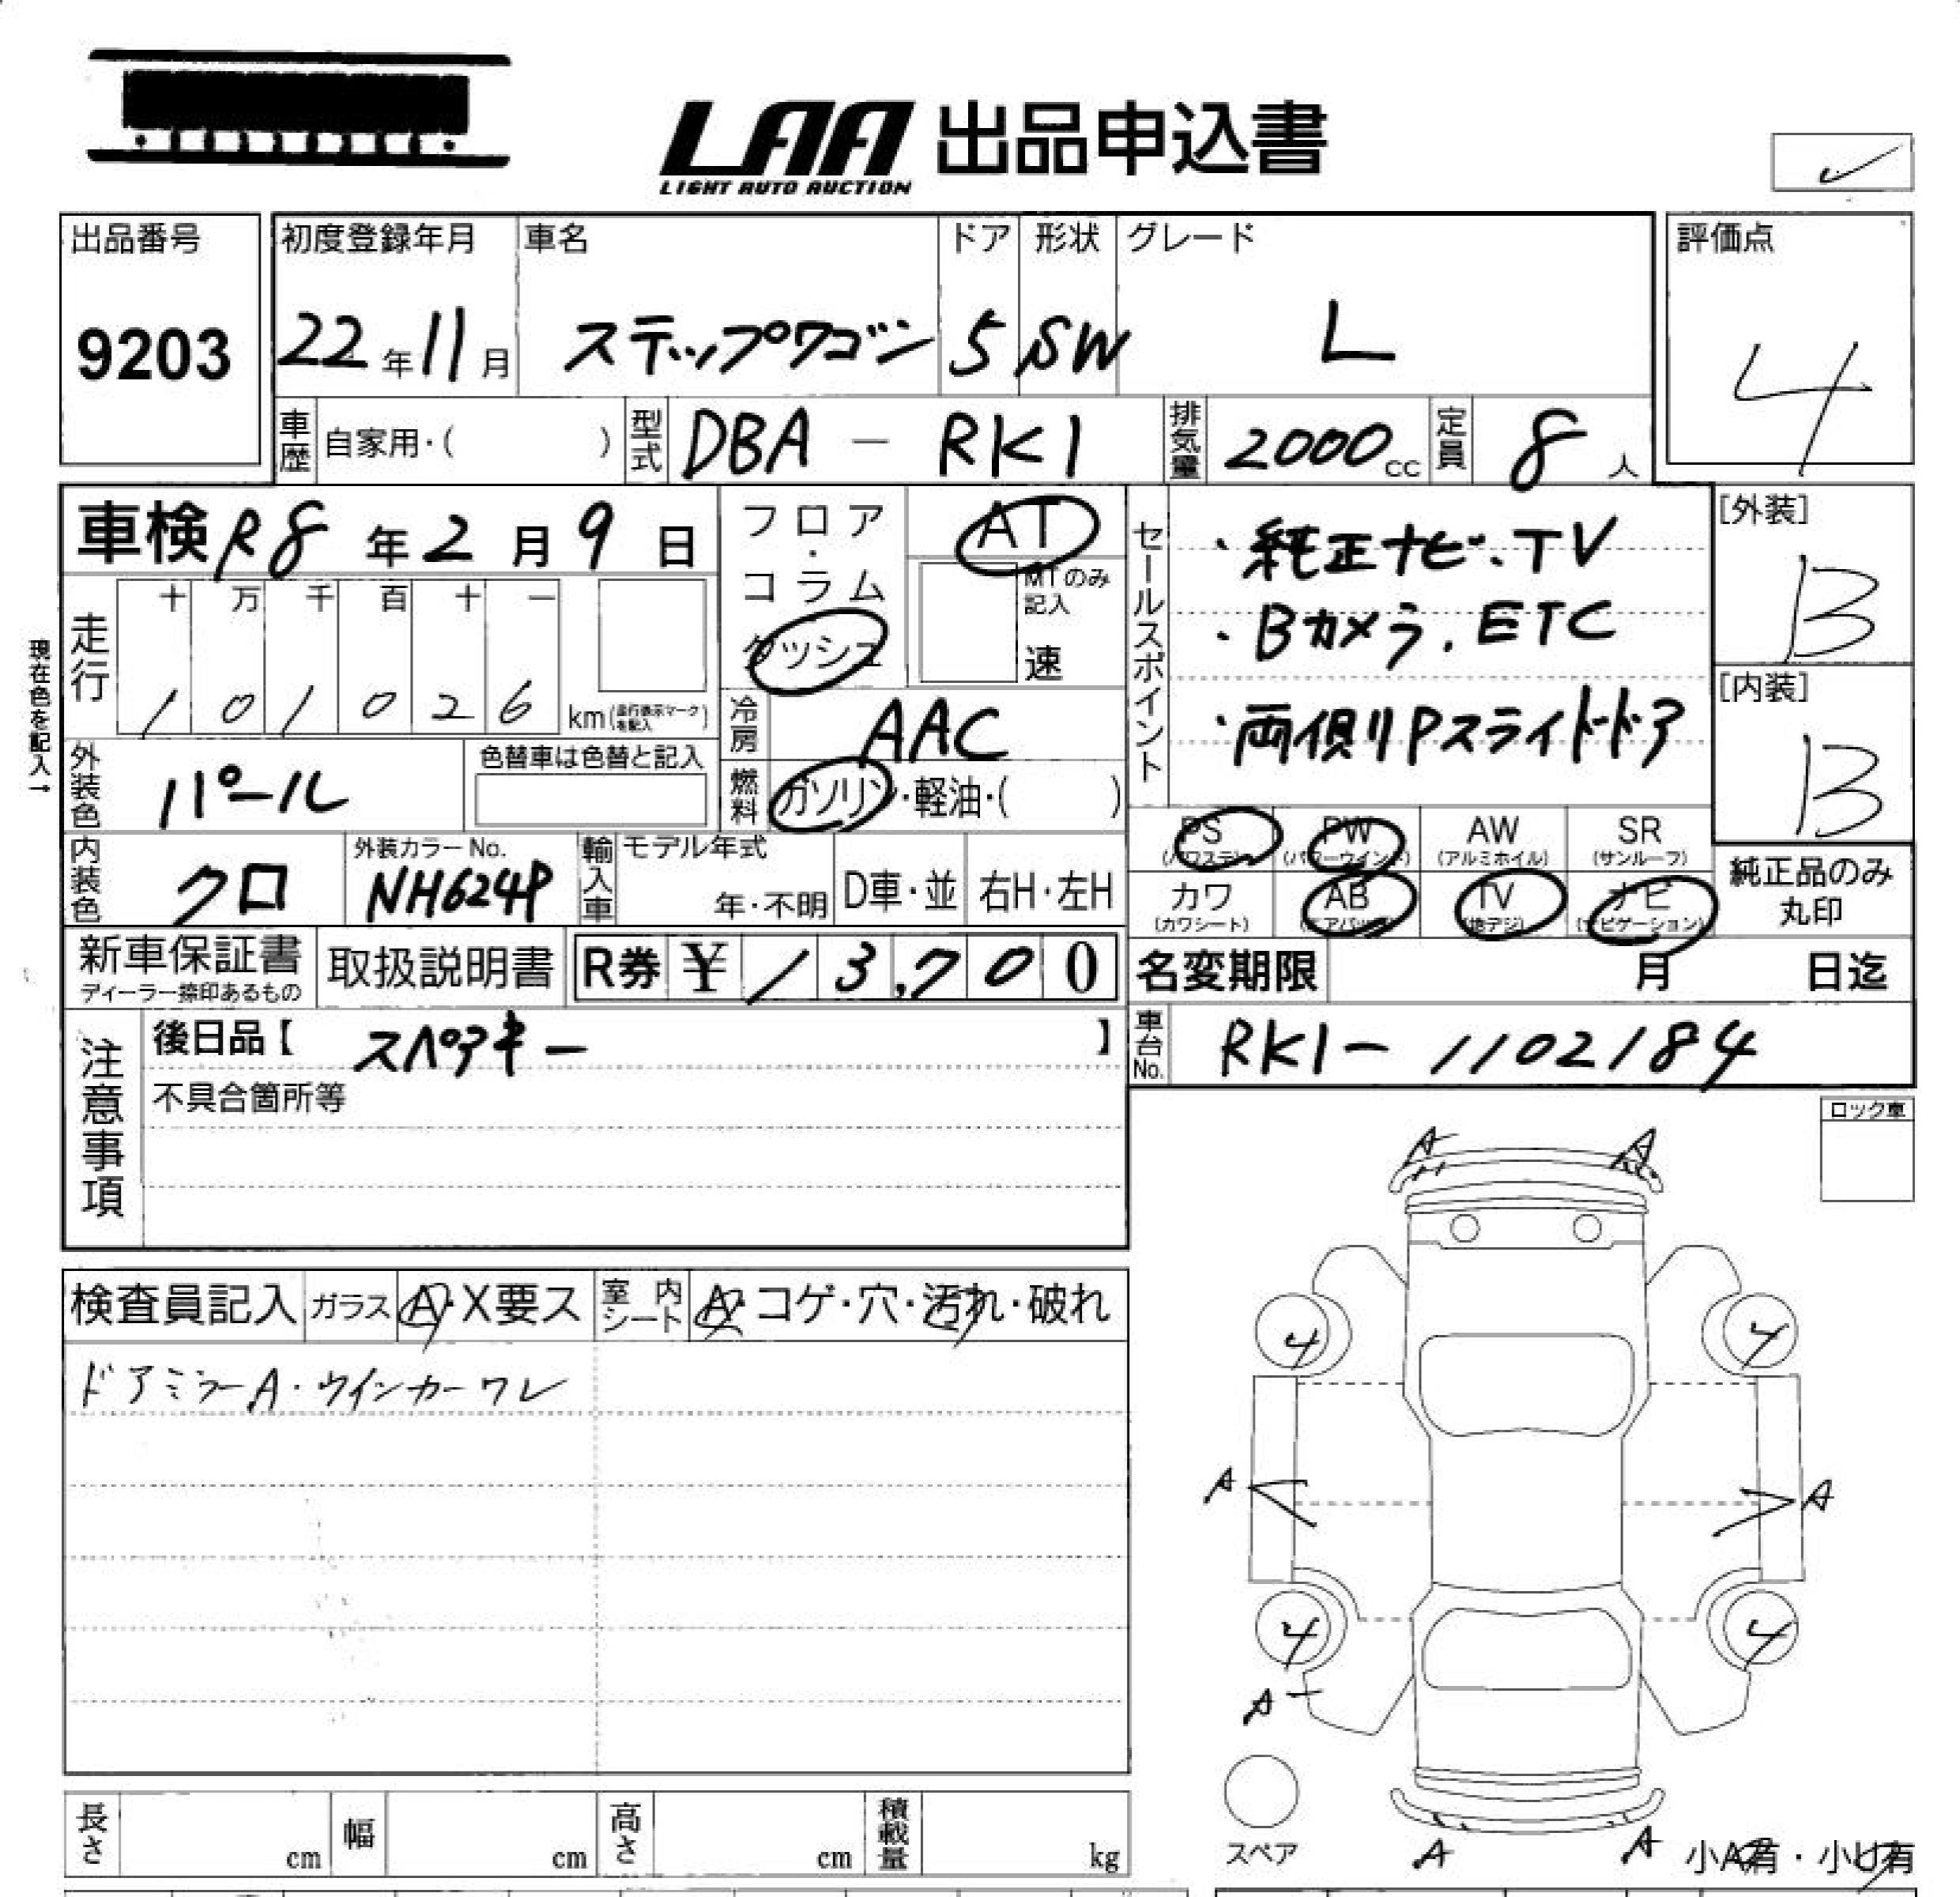 LAA 出品申込書
LIGHT AUTO AUCTION
出品番号 初度登録年月 車名 ドア 形状 グレード 評価点
9203 22年11月 ステップワゴン 5 SW L 4
車歴 自家用・( ) 型式 DBA - RK1 排気量 2000cc 定員 8人
車検 R8年2月9日 フロア・コラム ダッシュ AT MTのみ記入 速
セールスポイント
・純正ナビ、TV
・Bカメラ、ETC
・両側Pスライドドア
[外装] B
[内装] B
現在色を記入→
走行 十 万 千 百 十 一
1 0 1 0 2 6 km(走行表示マークを記入)
冷房 AAC
外装色 パール 色替車は色替と記入 燃料 ガソリン・軽油・( )
PS (パワステ) PW (パワーウインド) AW (アルミホイル) SR (サンルーフ)
内装色 クロ 外装カラーNo. NH624P 輸入車 モデル年式 年・不明 D車・並 右H・左H
カワ (カワシート) AB (エアバッグ) TV (地デジ) ナビ (ナビゲーション) 純正品のみ丸印
新車保証書 ディーラー捺印あるもの 取扱説明書 R券 ¥ 13,700 名変期限 月 日迄
注意事項 後日品【 スペアキー 】 車台No. RK1-1102184
不具合箇所等
ロック車
A A
検査員記入 ガラス A・X要ス 室内シート A・コゲ・穴・汚れ・破れ
4 4
ドアミラーA・ウインカーワレ
A A
4 4
A
スペア
A A 小A有・小U有
長さ cm 幅 cm 高さ cm 積載量 kg